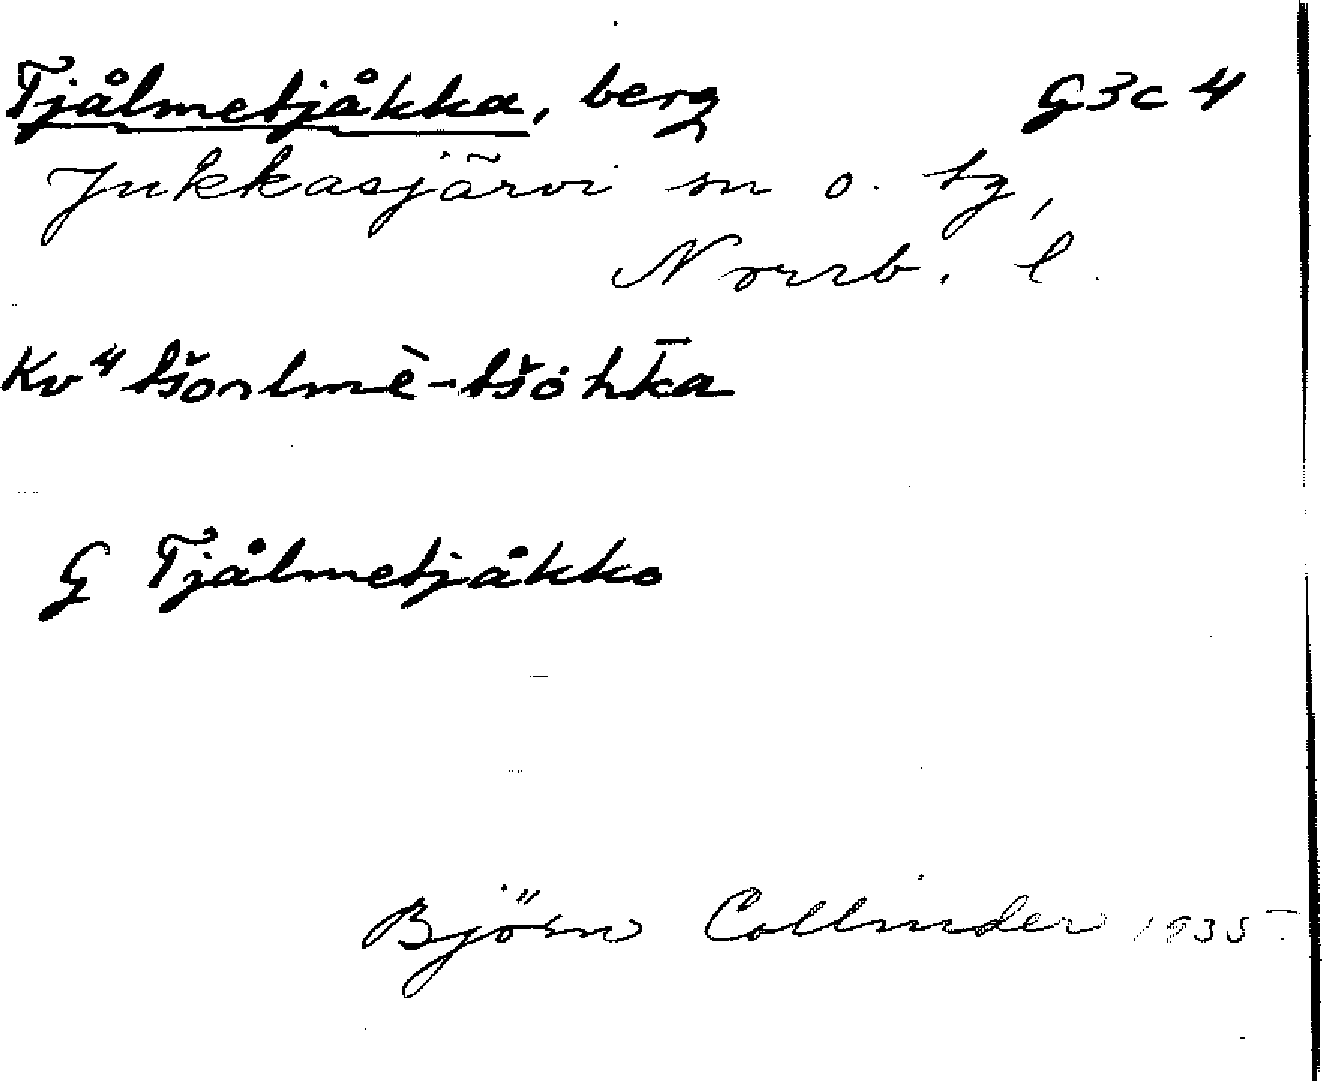 Tjålmetjåkka, berg G3c4
Jukkasjärvi sn o. tg,
Norrb. l.
Kv⁴ tšoɒlmè-tšȯhk̄a
G Tjålmetjåkko
Björn Collinder 1935.